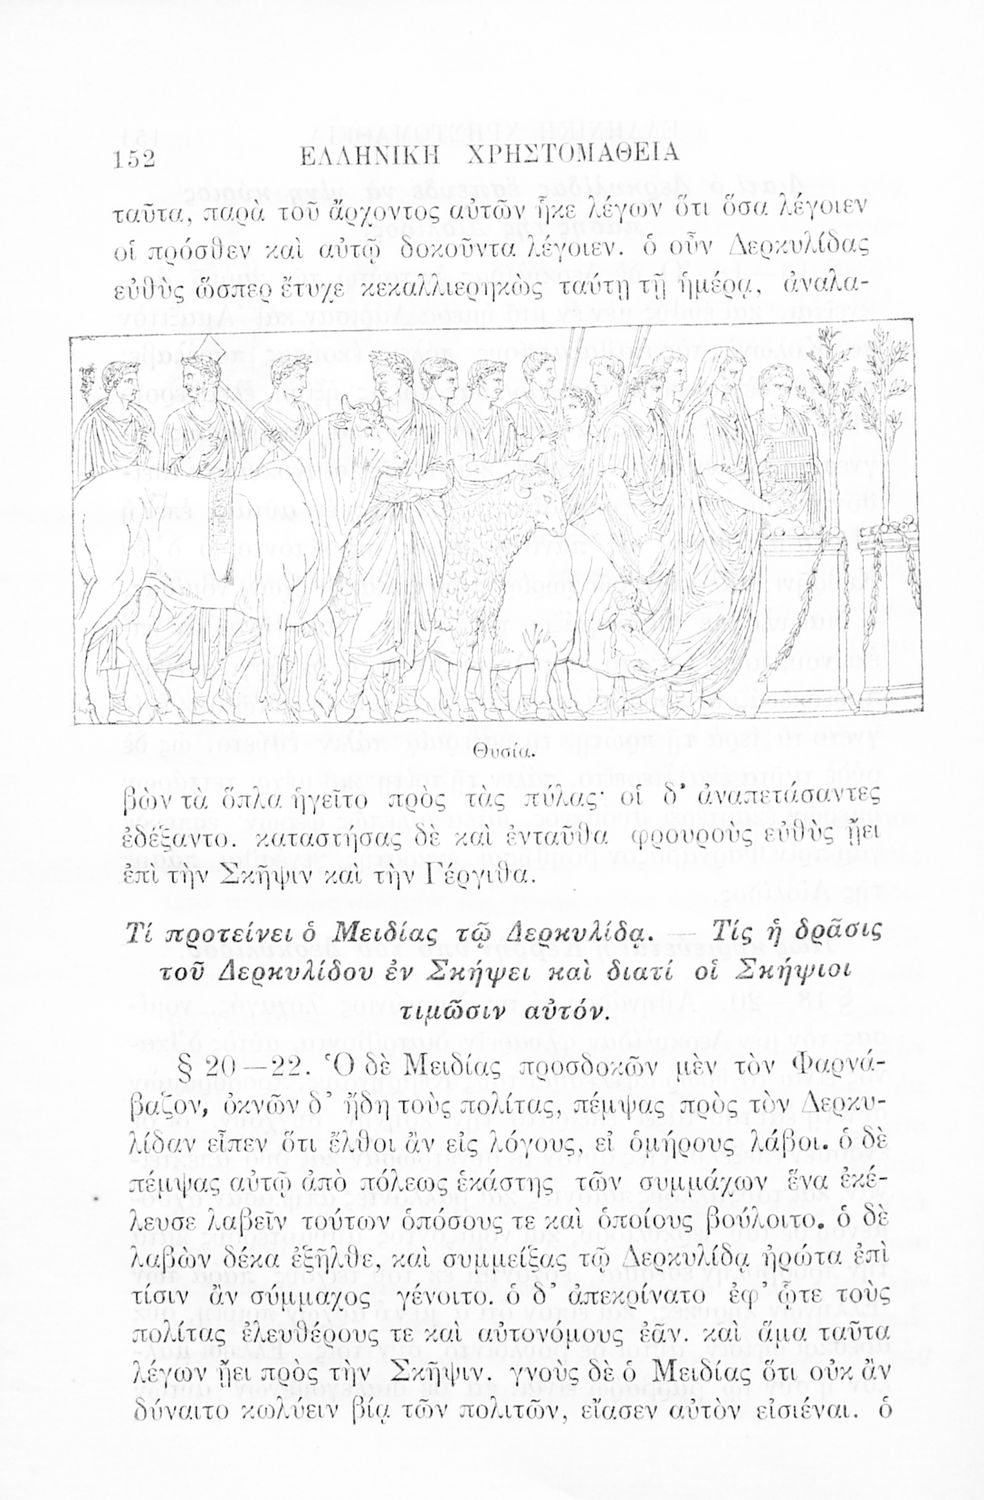 152 ΕΛΛΗΝΙΚΗ ΧΡΗΣΤΟΜΑΘΕΙΑ
ταῦτα, παρὰ τοῦ ἄρχοντος αὐτῶν ἧκε λέγων ὅτι ὅσα λέγοιεν
οἱ πρόσθεν καὶ αὐτῷ δοκοῦντα λέγοιεν. ὁ οὖν Δερκυλίδας
εὐθὺς ὥσπερ ἔτυχε κεκαλλιερηκὼς ταύτῃ τῇ ἡμέρᾳ, ἀναλα-
Θυσία.
βὼν τὰ ὅπλα ἡγεῖτο πρὸς τὰς πύλας· οἱ δ’ ἀναπετάσαντες
ἐδέξαντο. καταστήσας δὲ καὶ ἐνταῦθα φρουροὺς εὐθὺς ᾔει
ἐπὶ τὴν Σκῆψιν καὶ τὴν Γέργιθα.
Τί προτείνει ὁ Μειδίας τῷ Δερκυλίδᾳ. — Τίς ἡ δρᾶσις
τοῦ Δερκυλίδου ἐν Σκήψει καὶ διατί οἱ Σκήψιοι
τιμῶσιν αὐτόν.
§ 20—22. Ὁ δὲ Μειδίας προσδοκῶν μὲν τὸν Φαρνά-
βαζον, ὀκνῶν δ’ ἤδη τοὺς πολίτας, πέμψας πρὸς τὸν Δερκυ-
λίδαν εἶπεν ὅτι ἔλθοι ἂν εἰς λόγους, εἰ ὁμήρους λάβοι. ὁ δὲ
πέμψας αὐτῷ ἀπὸ πόλεως ἑκάστης τῶν συμμάχων ἕνα ἐκέ-
λευσε λαβεῖν τούτων ὁπόσους τε καὶ ὁποίους βούλοιτο. ὁ δὲ
λαβὼν δέκα ἐξῆλθε, καὶ συμμείξας τῷ Δερκυλίδᾳ ἠρώτα ἐπὶ
τίσιν ἂν σύμμαχος γένοιτο. ὁ δ’ ἀπεκρίνατο ἐφ’ ᾧτε τοὺς
πολίτας ἐλευθέρους τε καὶ αὐτονόμους ἐᾶν. καὶ ἅμα ταῦτα
λέγων ᾔει πρὸς τὴν Σκῆψιν. γνοὺς δὲ ὁ Μειδίας ὅτι οὐκ ἂν
δύναιτο κωλύειν βίᾳ τῶν πολιτῶν, εἴασεν αὐτὸν εἰσιέναι. ὁ